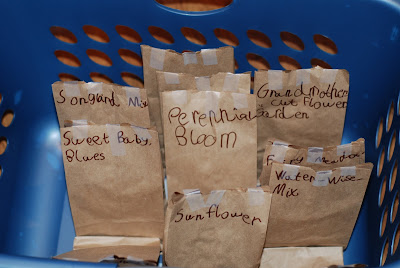 Songbird Mix
Grandmother
Cut Flower
Garden
Perephial
Bloom
Sweet Baby
Blues
Fairy Meadow
Water Wise
Mix
Sunflower